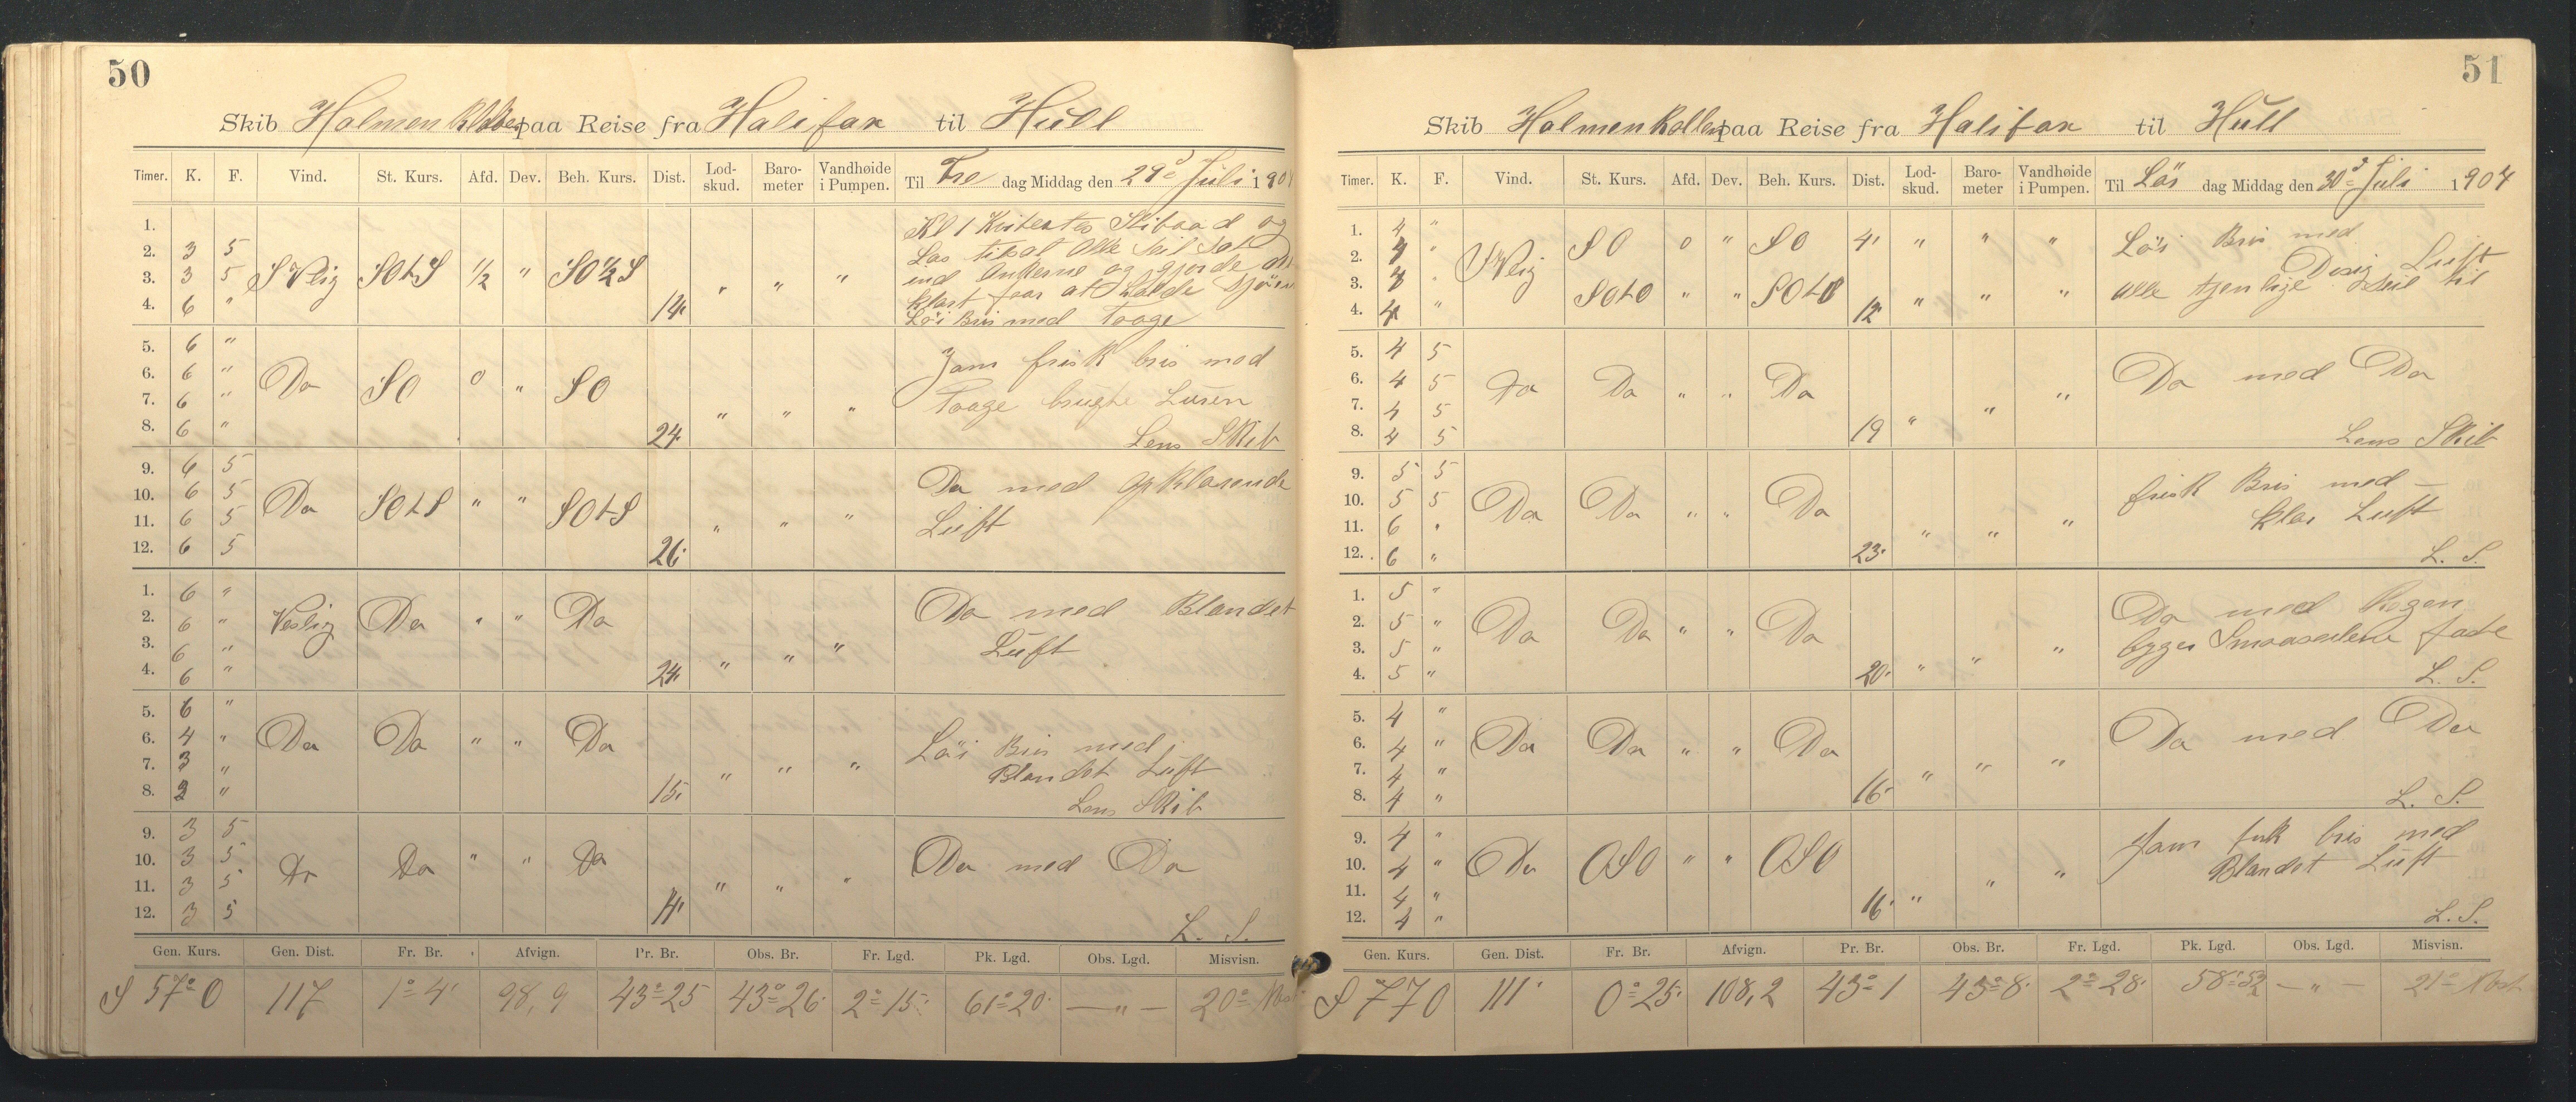 50
Skib Holmenkollen paa Reise fra Halifax til Hull
Timer. K. F. Vind. St. Kurs. Afd. Dev. Beh. Kurs. Dist. Lod-skud. Baro-meter Vandhøide i Pumpen. Til Fre dag Middag den 29d Juli 1904
1. Kl 1 Skibaad og
2. 3 5 Las Alle Seil Sat
3. 3 5 S Vlig SOtS 1/2 " SO 1/2 S " " " ind Ankerne og gjorde
4. 6 " 14. klart faar at holde Sjøen
Løi Bris med Taage
5. 6 " Jam frisk bris med
6. 6 " Do SO 0 " SO
7. 6 " " " " Taage brugte Luren
8. 6 " 24. Lens Skib
9. 6 5 Do med opklarende
10. 6 5 Do SOtS " " SOtS
11. 6 5 " " " Luft
12. 6 5 26.
1. 6 " Do med Blandet
2. 6 " Vestlig Do " " Do
3. 6 " " " " Luft
4. 6 " 24.
5. 6 "
6. 4 " Do Do " " Do Løi Bris med
7. 3 " " " " Blandet Luft
8. 2 " 15. Lens Skib
9. 3 5
10. 3 5 Do Do " " Do Do med Do
11. 3 5 " " "
12. 3 5 14. L. S.
Gen. Kurs. Gen. Dist. Fr. Br. Afvign. Pr. Br. Obs. Br. Fr. Lgd. Pk. Lgd. Obs. Lgd. Misvisn.
S 57° O 117 1° 4' 98,9 43° 25 43° 26' 2° 15' 61° 20' — " — 20°
51
Skib Holmenkollen paa Reise fra Halifax til Hull
Timer. K. F. Vind. St. Kurs. Afd. Dev. Beh. Kurs. Dist. Lod-skud. Baro-meter Vandhøide i Pumpen. Til Lös dag Middag den 30d Juli 1904
1. 4 " Løi Bris med
2. 4 " SVlig SO 0 " SO 4' " " " Disig Luft
3. 3 " SOtO " " SOtO " " " Alle tjenlige Seil til
4. 4 " 12'
5. 4 5
6. 4 5 Do Do " " Do Do med Do
7. 4 5 " " "
8. 4 5 19 Lens Skib
9. 5 5 frisk Bris med —
10. 5 5 Do Do " " Do
11. 6 " " " " klar Luft
12. 6 " 23. L. S.
1. 5 " Do med Regen
2. 5 " Do Do " " Do byger Smaaseilene faste
3. 5 " " " "
4. 5 " 20. L. S.
5. 4 "
6. 4 " Do Do " " Do Do med Do
7. 4 " " " "
8. 4 " 16. L. S.
9. 4 " Jam frisk bris med
10. 4 " Do OSO " " OSO Blandet Luft
11. 4 " " " "
12. 4 " 16. L. S.
Gen. Kurs. Gen. Dist. Fr. Br. Afvign. Pr. Br. Obs. Br. Fr. Lgd. Pk. Lgd. Obs. Lgd. Misvisn.
S 77 O 111' 0° 25' 108,2 43° 1 43° 8' 2° 28' 58° 52 — " — 21°